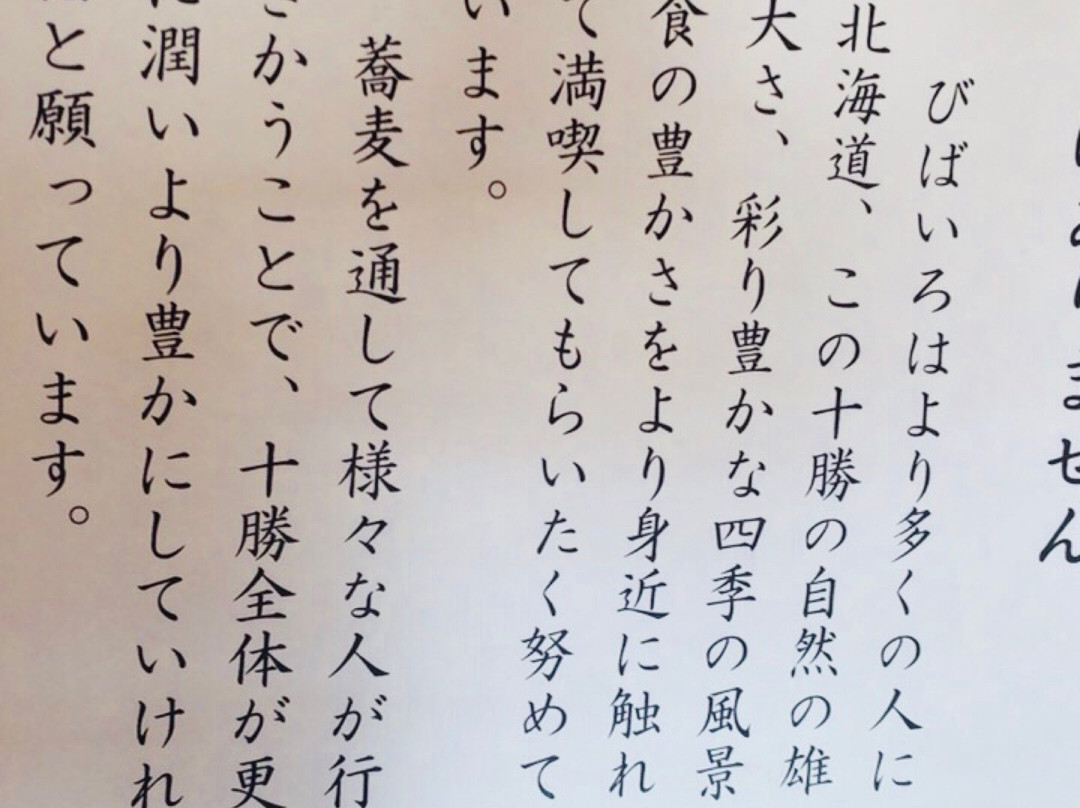 ません
びばいろはより多くの人に
北海道、この十勝の自然の雄
大さ、彩り豊かな四季の風景
食の豊かさをより身近に触れ
て満喫してもらいたく努めて
います。
蕎麦を通して様々な人が行
きかうことで、十勝全体が更
に潤いより豊かにしていけれ
と願っています。